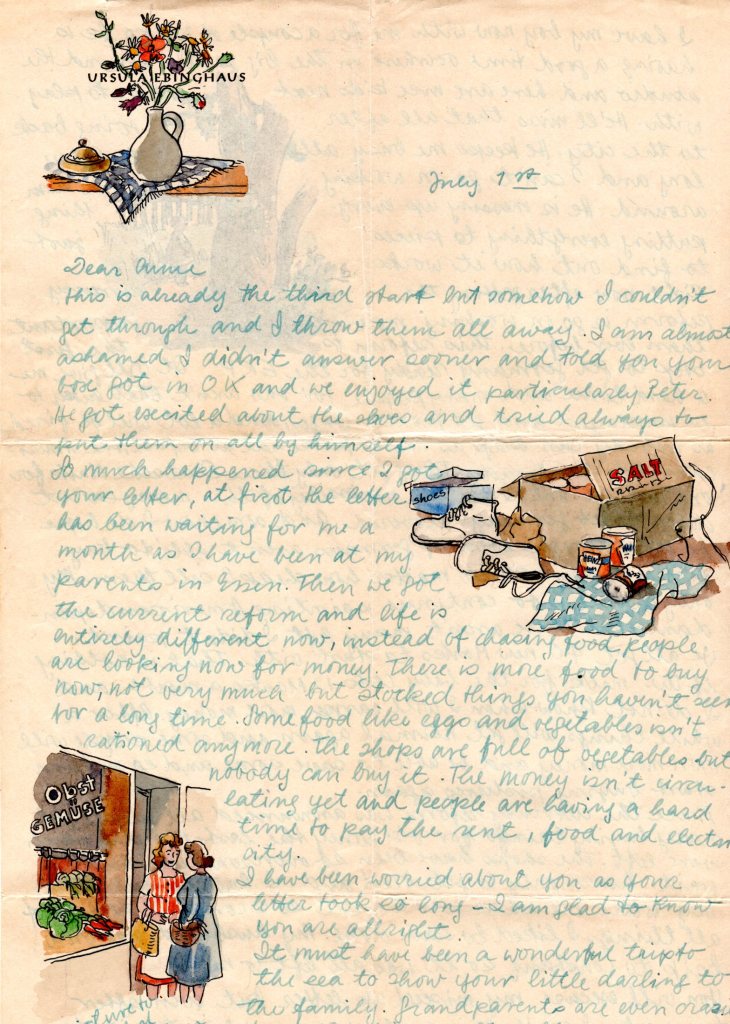 URSULA EBINGHAUS
July 1st
Dear Annie
This is already the third start but somehow I couldn't
get through and I throw them all away. I am almost
ashamed I didn't answer sooner and told you your
box got in O K and we enjoyed it particularly Peter.
He got excited about the shoes and tried always to
put them on all by himself.
So much happened since I got
your letter, at first the letter
has been waiting for me a
month as I have been at my
parents in Essen. Then we got
the current reform and life is
entirely different now, instead of chasing food people
are looking now for money. There is more food to buy
now, not very much but stocked things you haven't seen
for a long time. Some food like eggs and vegetables isn't
rationed anymore. The shops are full of vegetables but
nobody can buy it. The money isn't circu-
lating yet and people are having a hard
time to pay the rent, food and electri
city.
I have been worried about you as your
letter took so long – I am glad to know
you are allright.
It must have been a wonderful trip to
the sea to show your little darling to
the family. Grandparents are even
shoes
SALT
HEINZ
Obst
GEMÜSE